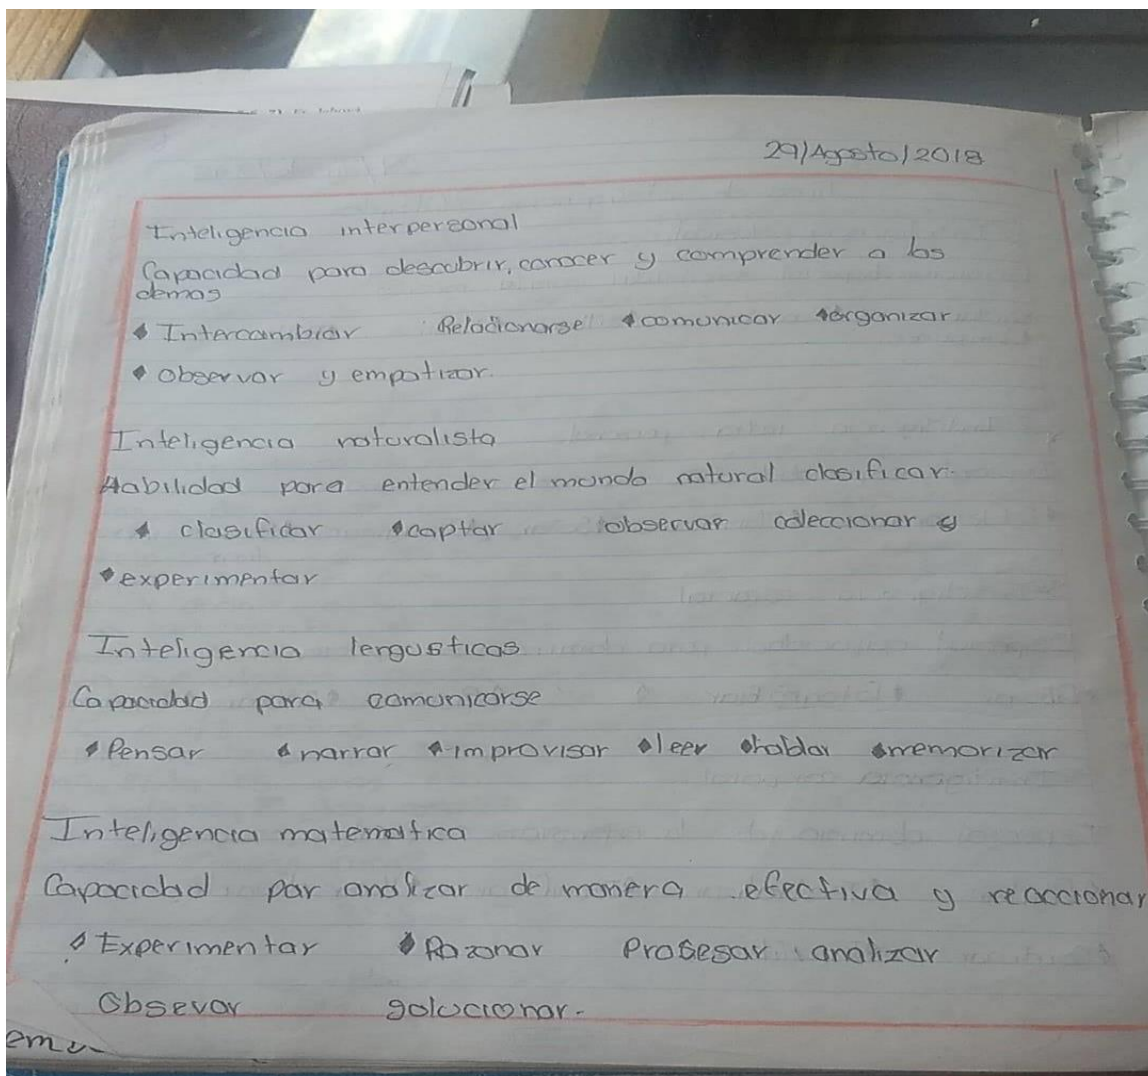 29/Agosto/2018
Inteligencia interpersonal
Capacidad para descubrir, conocer y comprender a los
demas
Intercambiar Relacionarse comunicar organizar
Observar y empatizar.
Inteligencia naturalista
Habilidad para entender el mundo natural clasificar.
clasificar captar observar coleccionar y
experimentar
Inteligencia lengusticas
Capacidad para comunicarse
Pensar narrar improvisar leer hablar memorizar
Inteligencia matematica
Capacidad par analizar de manera efectiva y reaccionar
Experimentar Razonar Prosesar analizar
Obsevar solucionar.